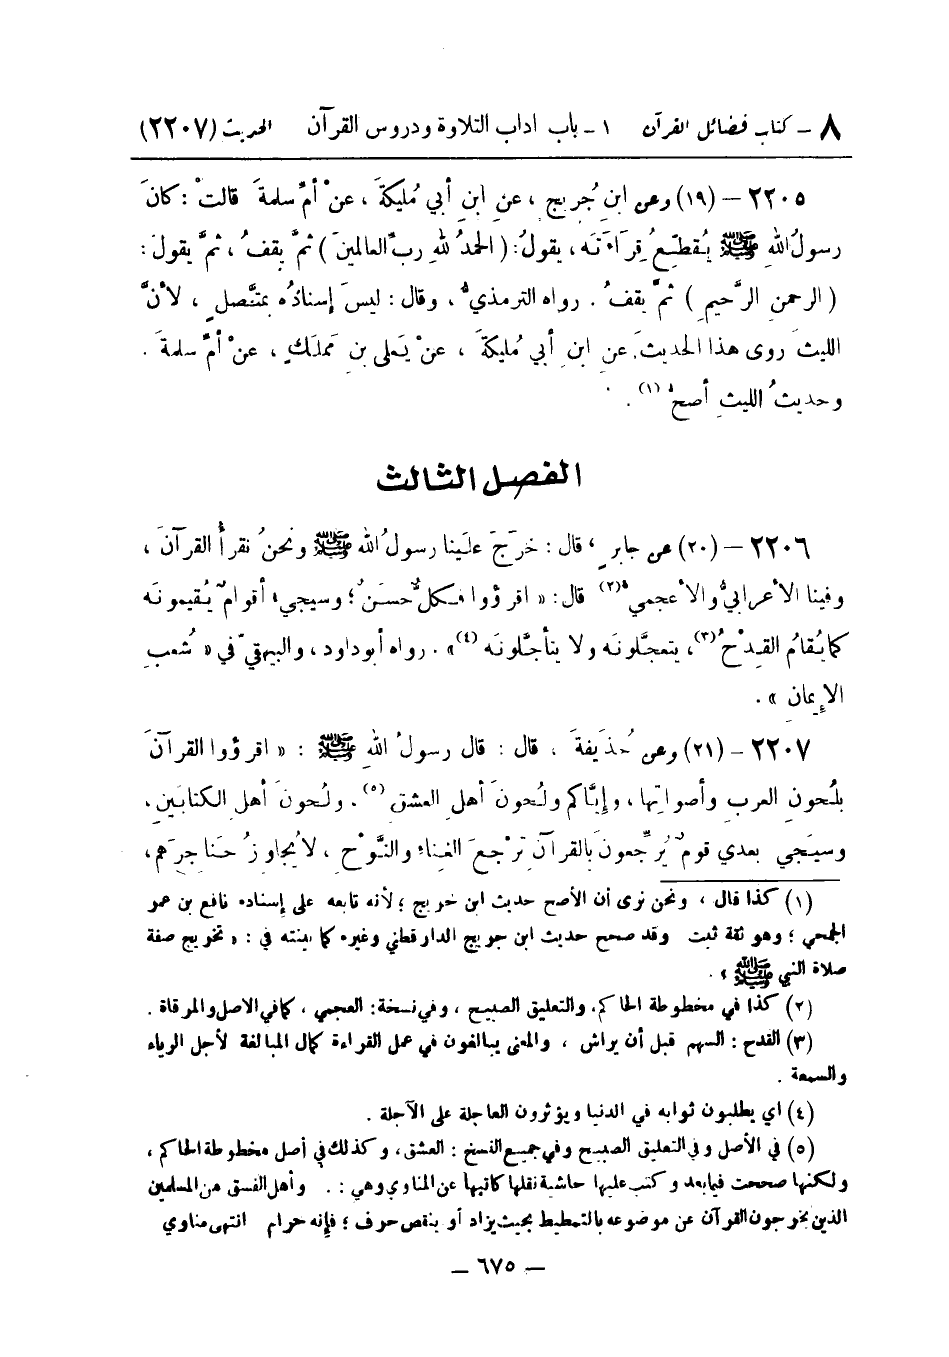 ٨ - كتاب فضائل القرآن ١ - باب اداب التلاوة ودروس القرآن الحديث (٢٢٠٧)
٢٢٠٥ - (١٩) وعن ابنِ جُريجٍ ، عنِ ابنِ أبي مُليكةَ ، عنْ أمِّ سلمةَ قالتْ : كانَ
رسولُ اللهِ ﷺ يُقطِّعُ قراءتَه ، يقولُ : ( الحمدُ للهِ ربِّ العالمينَ ) ثمَّ يقفُ ، ثمَّ يقولَ :
( الرحمنِ الرَّحيمِ ) ثمَّ يقفُ . رواه الترمذيُّ ، وقال : ليسَ إسنادُه بمتَّصلٍ ، لأنَّ
الليثَ روى هذا الحديثَ عنِ ابنِ أبي مُليكةَ ، عنْ يَعلى بنِ مَملكٍ ، عنْ أمِّ سلمةَ .
وحديثُ الليثِ أصحُّ (١) .
الفصل الثالث
٢٢٠٦ - (٢٠) عن جابرٍ ، قال : خرَجَ علَينا رسولُ اللهِ ﷺ ونحنُ نقرأُ القرآنَ ،
وفينا الأعرابيُّ والأعجميُّ (٢) قال : « اقرؤوا فكلٌّ حسَنٌ ؛ وسيجيءُ أقوامٌ يُقيمونَه
كما يُقامُ القِدْحُ (٣) ، يتعجَّلونَه ولا يتأجَّلونَه (٤) » . رواه أبو داود ، والبيهقيّ في « شُعبِ
الإِيمان » .
٢٢٠٧ - (٢١) وعن حُذَيفةَ ، قال : قال رسولُ اللهِ ﷺ : « اقرؤوا القرآنَ
بلُحونِ العربِ وأصواتِها ، وإِيَّاكم ولُحونَ أهلِ العشقِ (٥) . ولُحونَ أهلِ الكتابَينِ ،
وسيَجي بعدي قومٌ يُرجِّعونَ بالقرآنِ ترْجعَ الغِناءِ والنَّوْحِ ، لا يُجاوِزُ حَناجرَهم ،
(١) كذا قال ، ونحن نرى أن الأصح حديث ابن جريج ؛ لأنه تابعه على إسناده نافع بن عمر
الجمحي ؛ وهو ثقة ثبت وقد صحح حديث ابن جريج الدارقطني وغيره كما بينته في : « تخريج صفة
صلاة النبي ﷺ » .
(٢) كذا في مخطوطة الحاكم. والتعليق الصبيح ، وفي نسخة : العجمي ، كما في الاصل والمرقاة .
(٣) القدح : السهم قبل أن يراش ، والمعنى يبالغون في عمل القراءة كمال المبالغة لأجل الرياء
والسمعة .
(٤) اي يطلبون ثوابه في الدنيا ويؤثرون العاجلة على الآجلة .
(٥) في الأصل وفي التعليق الصبيح وفي جميع النسخ : العشق ، وكذلك في أصل مخطوطة الحاكم ،
ولكنها صححت فيما بعد وكتب عليها حاشية نقلها كاتبها عن المناوي وهي : . وأهل الفسق من المسلمين
الذين يخرجون القرآن عن موضوعه بالتمطيط بحيث يزاد أو ينقص حرف ؛ فإنه حرام انتهى مناوي
- ٦٧٥ -